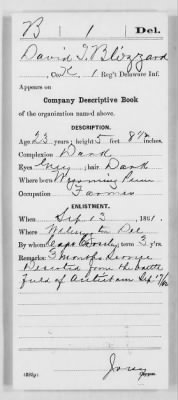 B | 1 | Del.
David T. Blizzard
, Co. K, 1 Reg't Delaware Inf.
Appears on
Company Descriptive Book
of the organization named above.
DESCRIPTION.
Age 23 years; height 5 feet 8 1/2 inches.
Complexion Dark
Eyes Grey; hair Dark
Where born Wyoming Penn
Occupation Farmer
ENLISTMENT.
When Sep. 13, 1861.
Where Wilmington Del
By whom Capt term 3 y'rs.
Remarks: 3 months Service
Deserted from the battle
field of Antietam Sep. 17/62